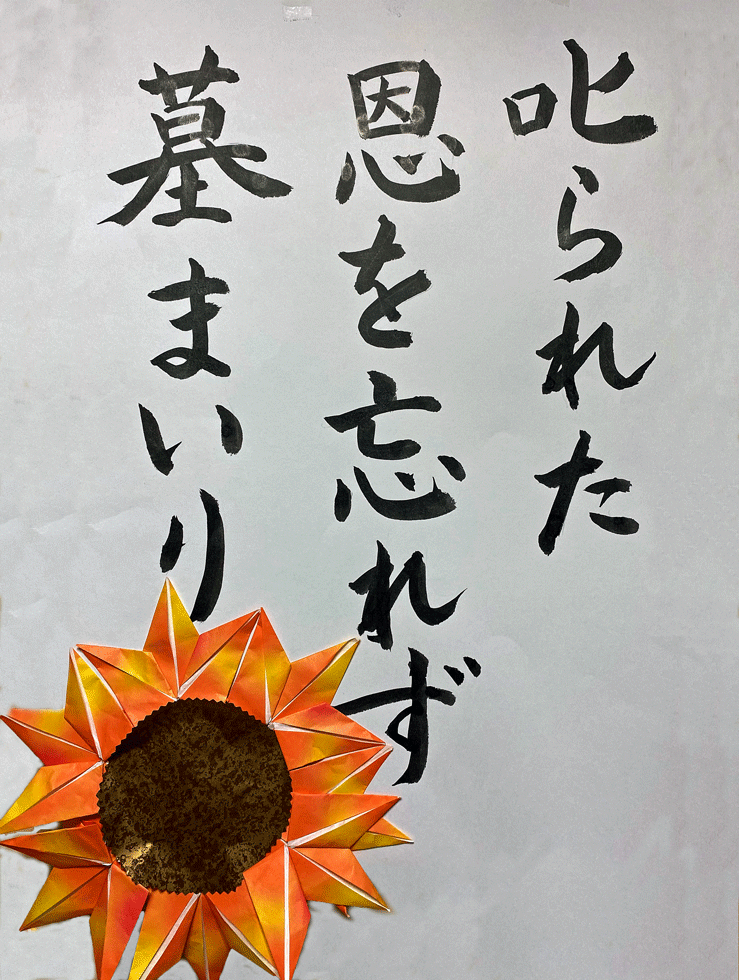 叱られた
恩を忘れず
墓まいり